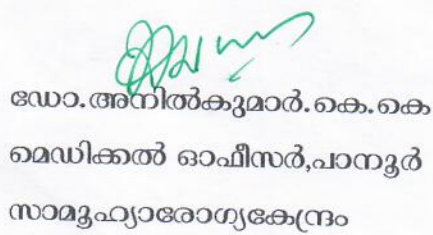 ഡോ.അനിൽകുമാർ.കെ.കെ
മെഡിക്കൽ ഓഫീസർ,പാനൂർ
സാമൂഹ്യാരോഗ്യകേന്ദ്രം